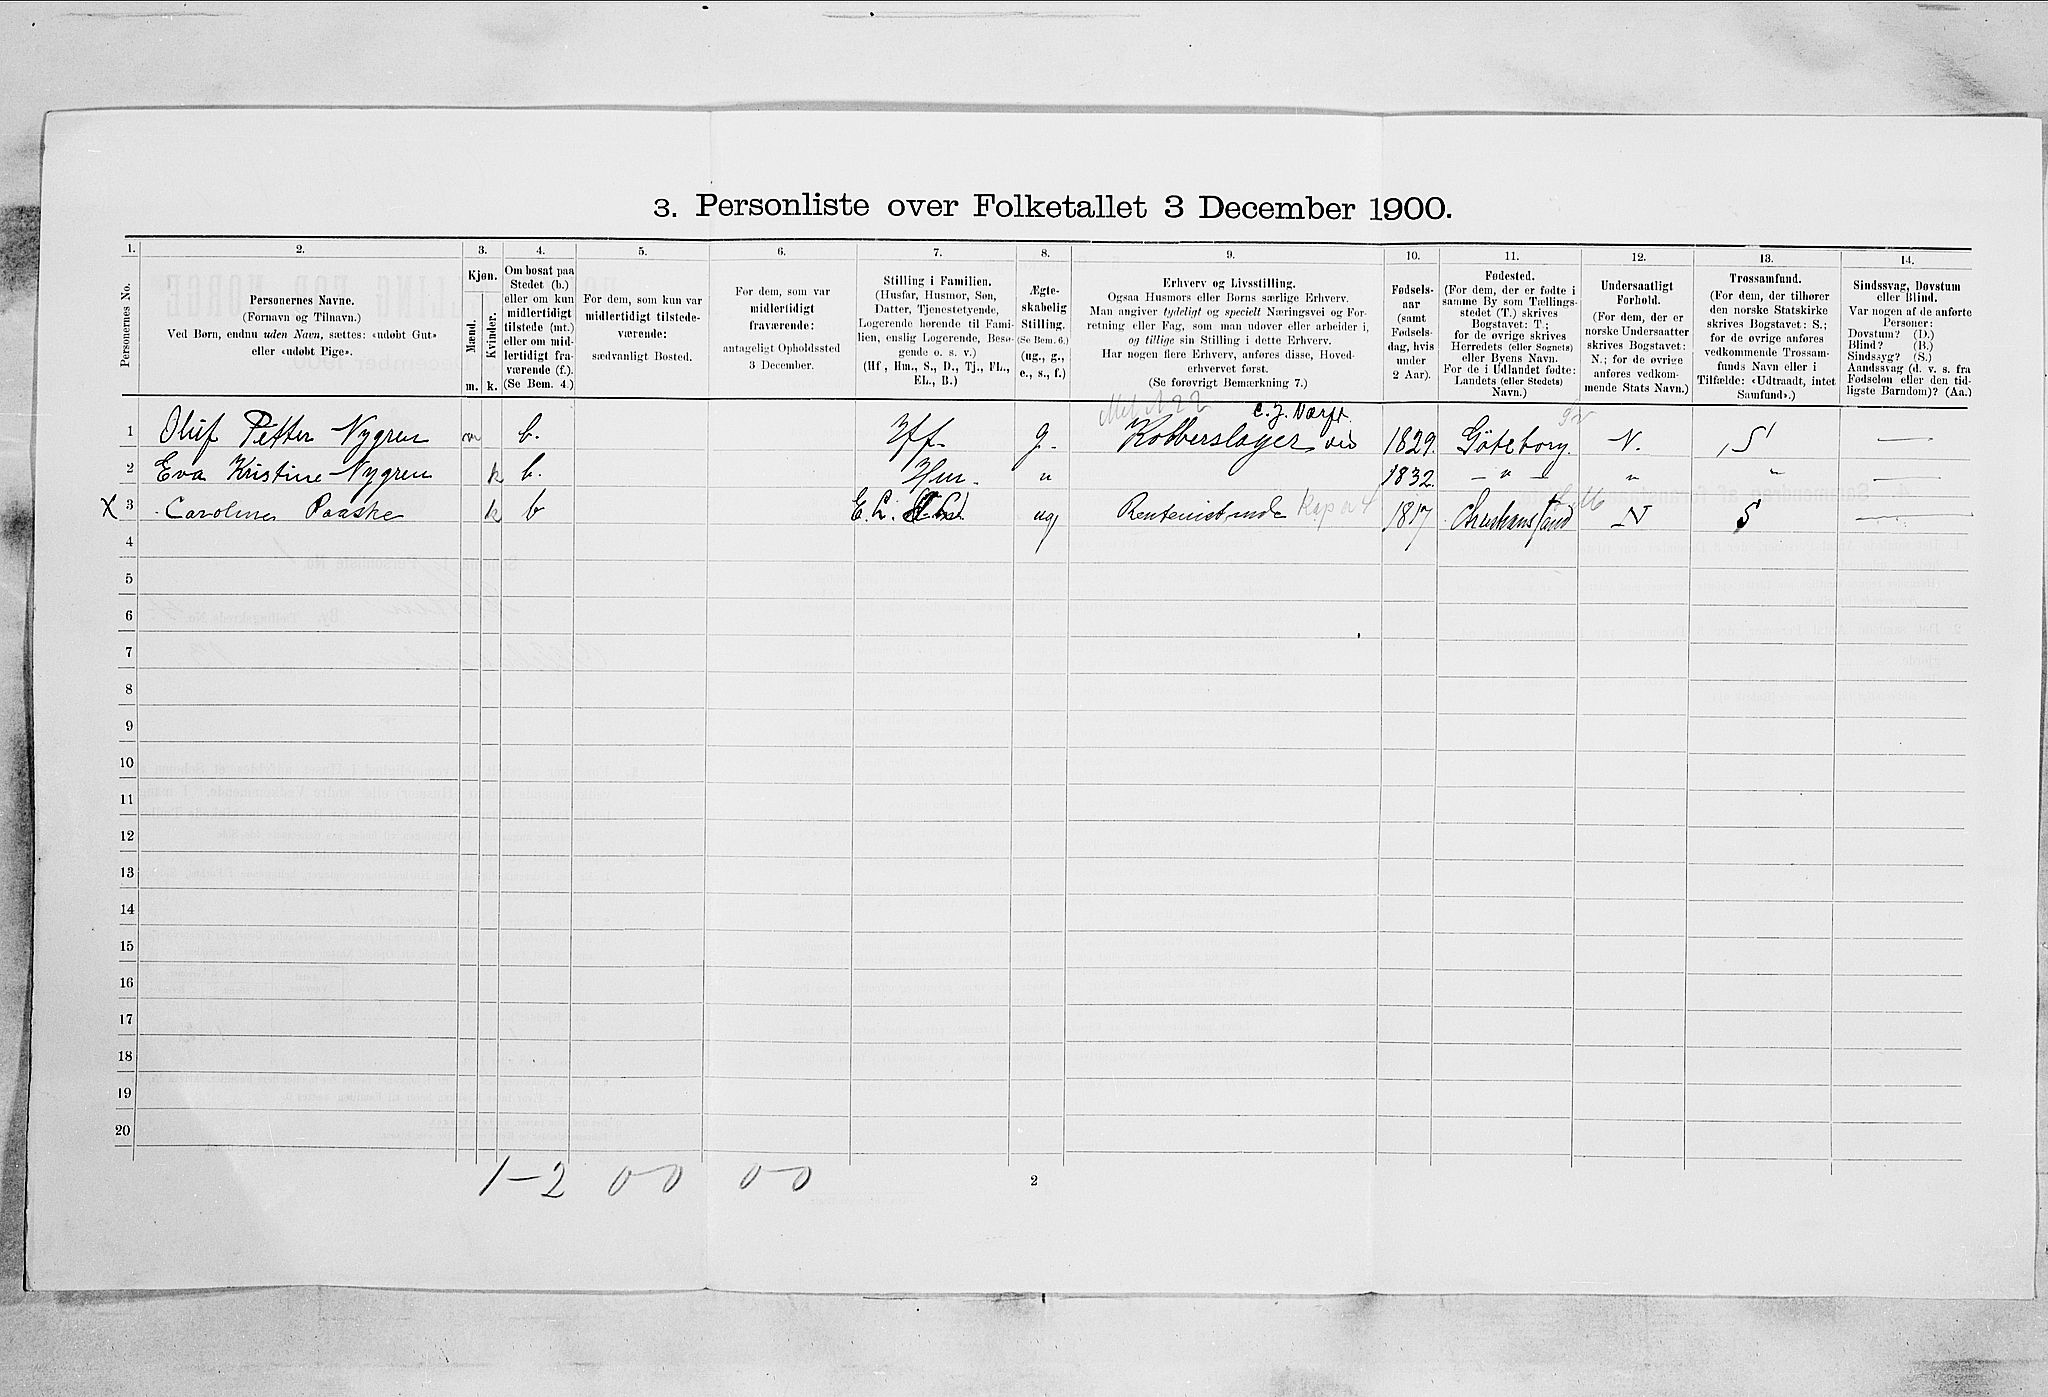 3. Personliste over Folketallet 3 December 1900.
1. 2. 3. 4. 5. 6. 7. 8. 9. 10. 11. 12. 13. 14.
Personernes No.
Personernes Navne.
(Fornavn og Tilnavn.)
Ved Børn, endnu uden Navn, sættes: «udøbt Gut»
eller «udøbt Pige».
Kjøn.
Mænd.
Kvinder.
m. k.
Om bosat paa
Stedet (b.)
eller om kun
midlertidigt
tilstede (mt.)
eller om mid-
lertidigt fra-
værende (f.).
(Se Bem. 4.)
For dem, som kun var
midlertidigt tilstede-
værende:
sædvanligt Bosted.
For dem, som var
midlertidigt
fraværende:
antageligt Opholdssted
3 December.
Stilling i Familien.
(Husfar, Husmor, Søn,
Datter, Tjenestetyende,
Logerende hørende til Fami-
lien, enslig Logerende, Besø-
gende o. s. v.)
(Hf., Hm., S., D., Tj., FL.,
EL., B.)
Ægte-
skabelig
Stilling.
(Se Bem. 6.)
(ug., g.,
e., s., f.)
Erhverv og Livsstilling.
Ogsaa Husmors eller Børns særlige Erhverv.
Man angiver tydeligt og specielt Næringsvei og For-
retning eller Fag, som man udøver eller arbeider i,
og tillige sin Stilling i dette Erhverv.
Har nogen flere Erhverv, anføres disse, Hoved-
erhvervet først.
(Se forøvrigt Bemærkning 7.)
Fødsels-
aar
(samt
Fødsels-
dag, hvis
under
2 Aar).
Fødested.
(For dem, der er fødte i
samme By som Tællings-
stedet (T.) skrives
Bogstavet: T.;
for de øvrige skrives
Herredets (eller Sognets)
eller Byens Navn.
For de i Udlandet fødte:
Landets (eller Stedets)
Navn.)
Undersaatligt
Forhold.
(For dem, der er
norske Undersaatter
skrives Bogstavet:
N.; for de øvrige
anføres vedkom-
mende Stats Navn.)
Trossamfund.
(For dem, der tilhører
den norske Statskirke
skrives Bogstavet: S.;
for de øvrige anføres
vedkommende Trossam-
funds Navn eller i
Tilfælde: «Udtraadt, intet
Samfund».)
Sindssvag, Døvstum
eller Blind.
Var nogen af de anførte
Personer:
Døvstum? (D.)
Blind? (B.)
Sindssyg? (S.)
Aandssvag (d. v. s. fra
Fødselen eller den tid-
ligste Barndom)? (Aa.)
1 Oluf Petter Nygren m b. Hf. g. Kobberslager ved C. J. Værft. 1829. Göteborg. N. S
2 Eva Kristine Nygren k b. Hm. " 1832. - " - " "
X 3 Caroline Paaske k b E. L. ug Kap a 4 1817 Christianssand N S
4
5
6
7
8
9
10
11
12
13
14
15
16
17
18
19
20
1-2 0-0 0-0
2